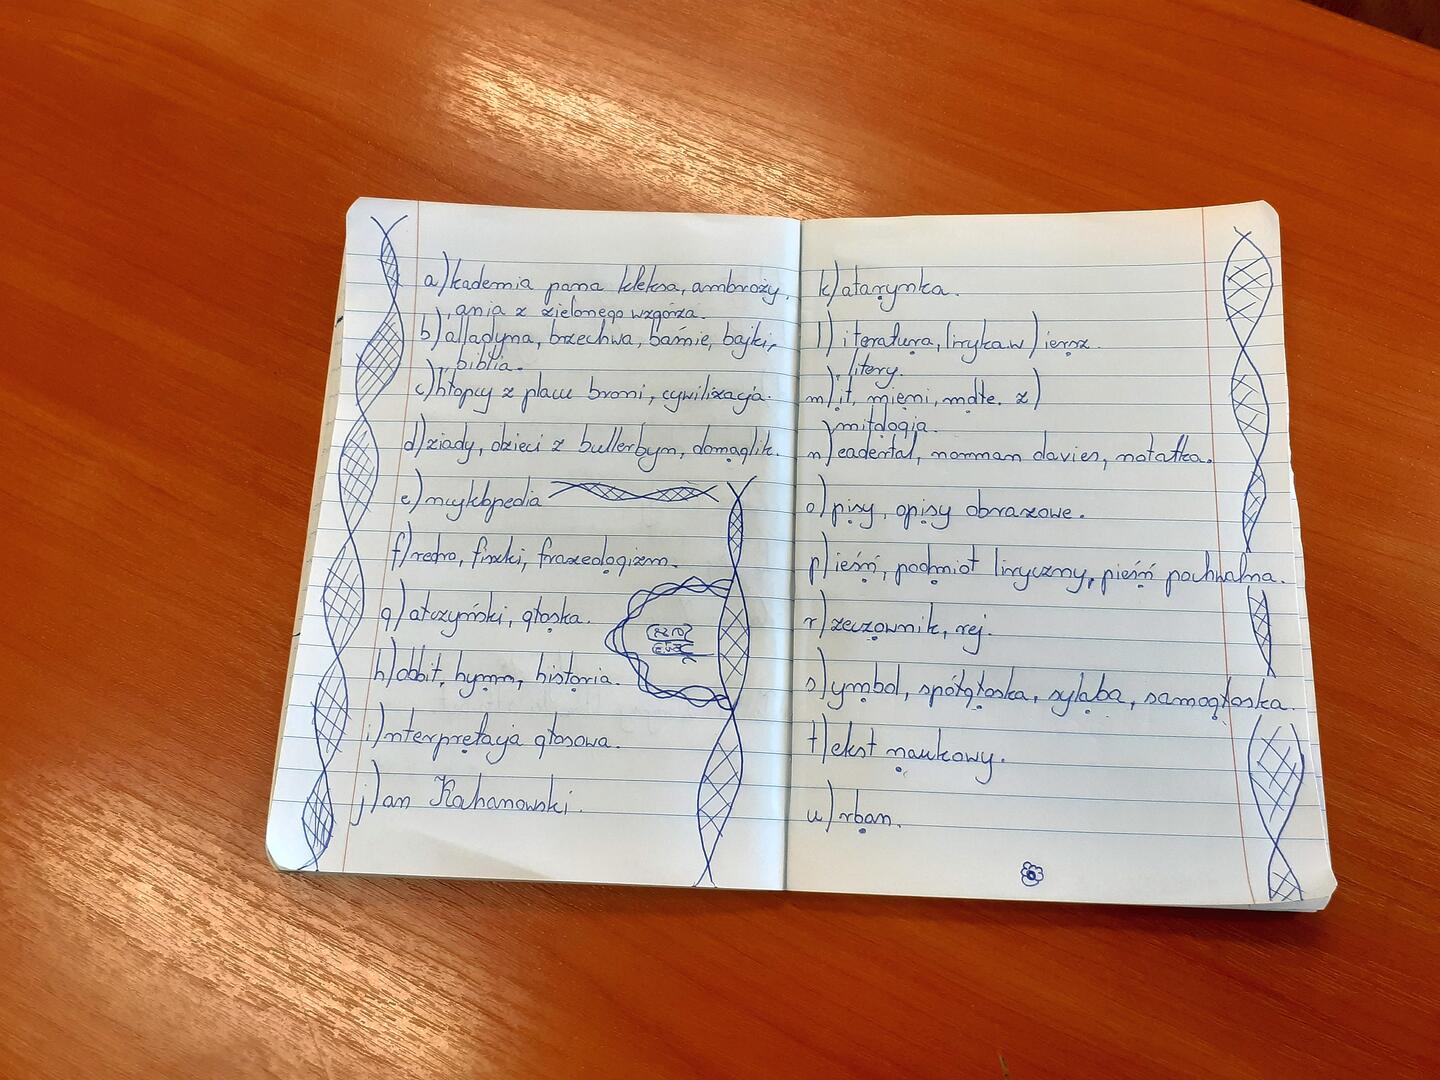 a) kademia pana kleksa, ambroży,
ania z zielonego wzgórza.
b) alladyna, brzechwa, baśnie, bajki,
biblia.
c) hłopcy z placu broni, cywilizacja.
d) ziady, dzieci z bullerbyn,
e) ncyklopedia
f) redro, fiszki, frazeologizm.
g) ałczyński, głoska.
h) obbit, hymn, historia.
i) nterpretacja głosowa.
j) an Kohanowski.
k) atarynka.
l) iteratura, liryka. w) iersz.
litery.
m) it,
mitologia.
n) eadertal, norman davies, notatka.
o) pisy, opisy obrazowe.
p) ieśń, podmiot liryczny, pieśń pochwalna.
r) zeczownik, rej.
s) ymbol, spółgłoska, sylaba, samogłoska.
t) ekst naukowy.
u) rban.